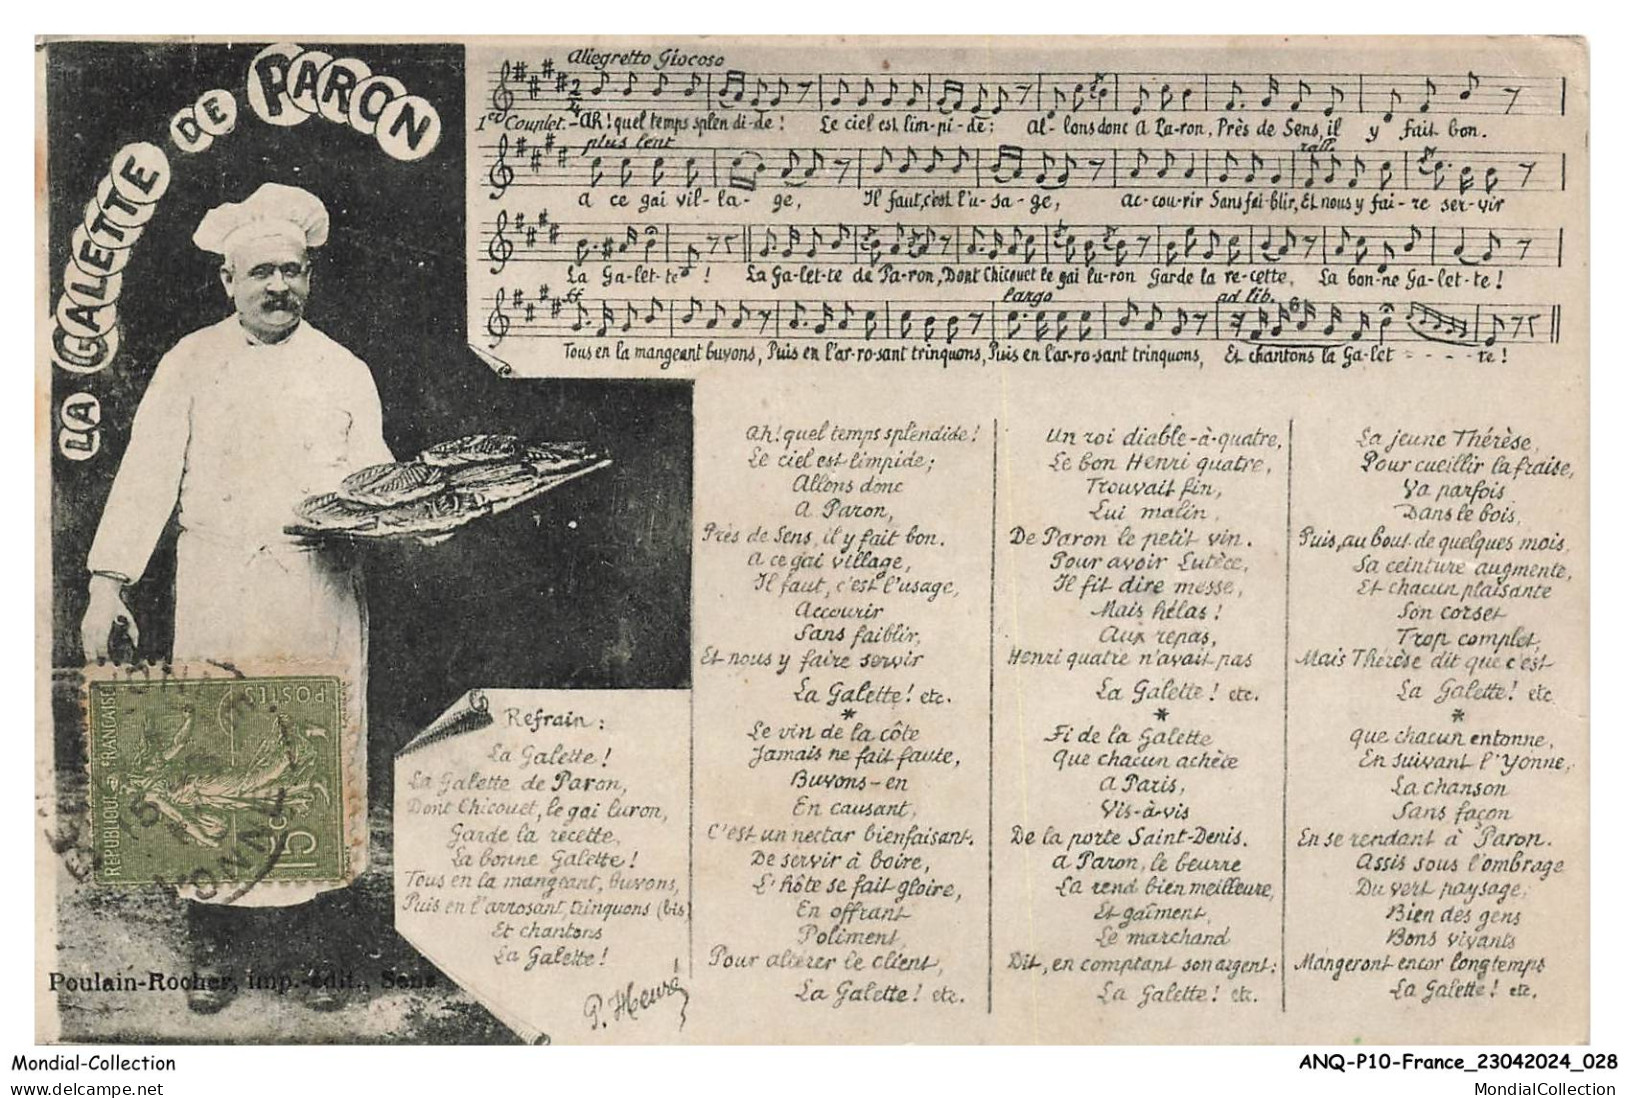 LA GALETTE DE PARON
Allegretto Giocoso
1er Couplet. - Ah! quel temps splen-di-de! Le ciel est lim-pi-de; Al-lons donc A Pa-ron, Près de Sens, il y fait bon.
plus lent
rall.
A ce gai vil-la-ge, Il faut, c'est l'u-sa-ge, Ac-cou-rir Sans fai-blir, Et nous y fai-re ser-vir
La Ga-let-te! La Ga-let-te de Pa-ron, Dont Chicouet le gai lu-ron Garde la re-cette, La bon-ne Ga-let-te!
ff
Largo
ad lib.
6
Tous en la mangeant buvons, Puis en l'ar-ro-sant trinquons, Puis en l'ar-ro-sant trinquons, Et chantons la Ga-let - - - - te!
Ah! quel temps splendide!
Le ciel est limpide;
Allons donc
A Paron,
Près de Sens, il y fait bon.
A ce gai village,
Il faut, c'est l'usage,
Accourir
Sans faiblir,
Et nous y faire servir
La Galette! etc.
*
Le vin de la côte
Jamais ne fait faute,
Buvons-en
En causant,
C'est un nectar bienfaisant.
De servir à boire,
L'hôte se fait gloire,
En offrant
Poliment,
Pour altérer le client,
La Galette! etc.
Un roi diable-à-quatre,
Le bon Henri quatre,
Trouvait fin,
Lui malin,
De Paron le petit vin.
Pour avoir Lutèce,
Il fit dire messe,
Mais hélas!
Aux repas,
Henri quatre n'avait pas
La Galette! etc.
*
Fi de la Galette
Que chacun achète
A Paris,
Vis-à-vis
De la porte Saint-Denis.
A Paron, le beurre
La rend bien meilleure,
Et gaîment,
Le marchand
Dit, en comptant son argent:
La Galette! etc.
La jeune Thérèse,
Pour cueillir la fraise,
Va parfois
Dans le bois,
Puis, au bout de quelques mois,
Sa ceinture augmente,
Et chacun plaisante
Son corset
Trop complet,
Mais Thérèse dit que c'est
La Galette! etc
*
Que chacun entonne,
En suivant l'Yonne,
La chanson
Sans façon
En se rendant à Paron.
Assis sous l'ombrage
Du vert paysage,
Bien des gens
Bons vivants
Mangeront encor longtemps
La Galette! etc.
Refrain:
La Galette!
La Galette de Paron,
Dont Chicouet, le gai luron,
Garde la recette,
La bonne Galette!
Tous en la mangeant, buvons,
Puis en l'arrosant, trinquons (bis)
Et chantons
La Galette!
P. Heuré
REPUBLIQUE FRANÇAISE
POSTES
15c
YONNE
Poulain-Rocher, imp.-édit., Sens
Mondial-Collection
ANQ-P10-France_23042024_028
www.delcampe.net
MondialCollection